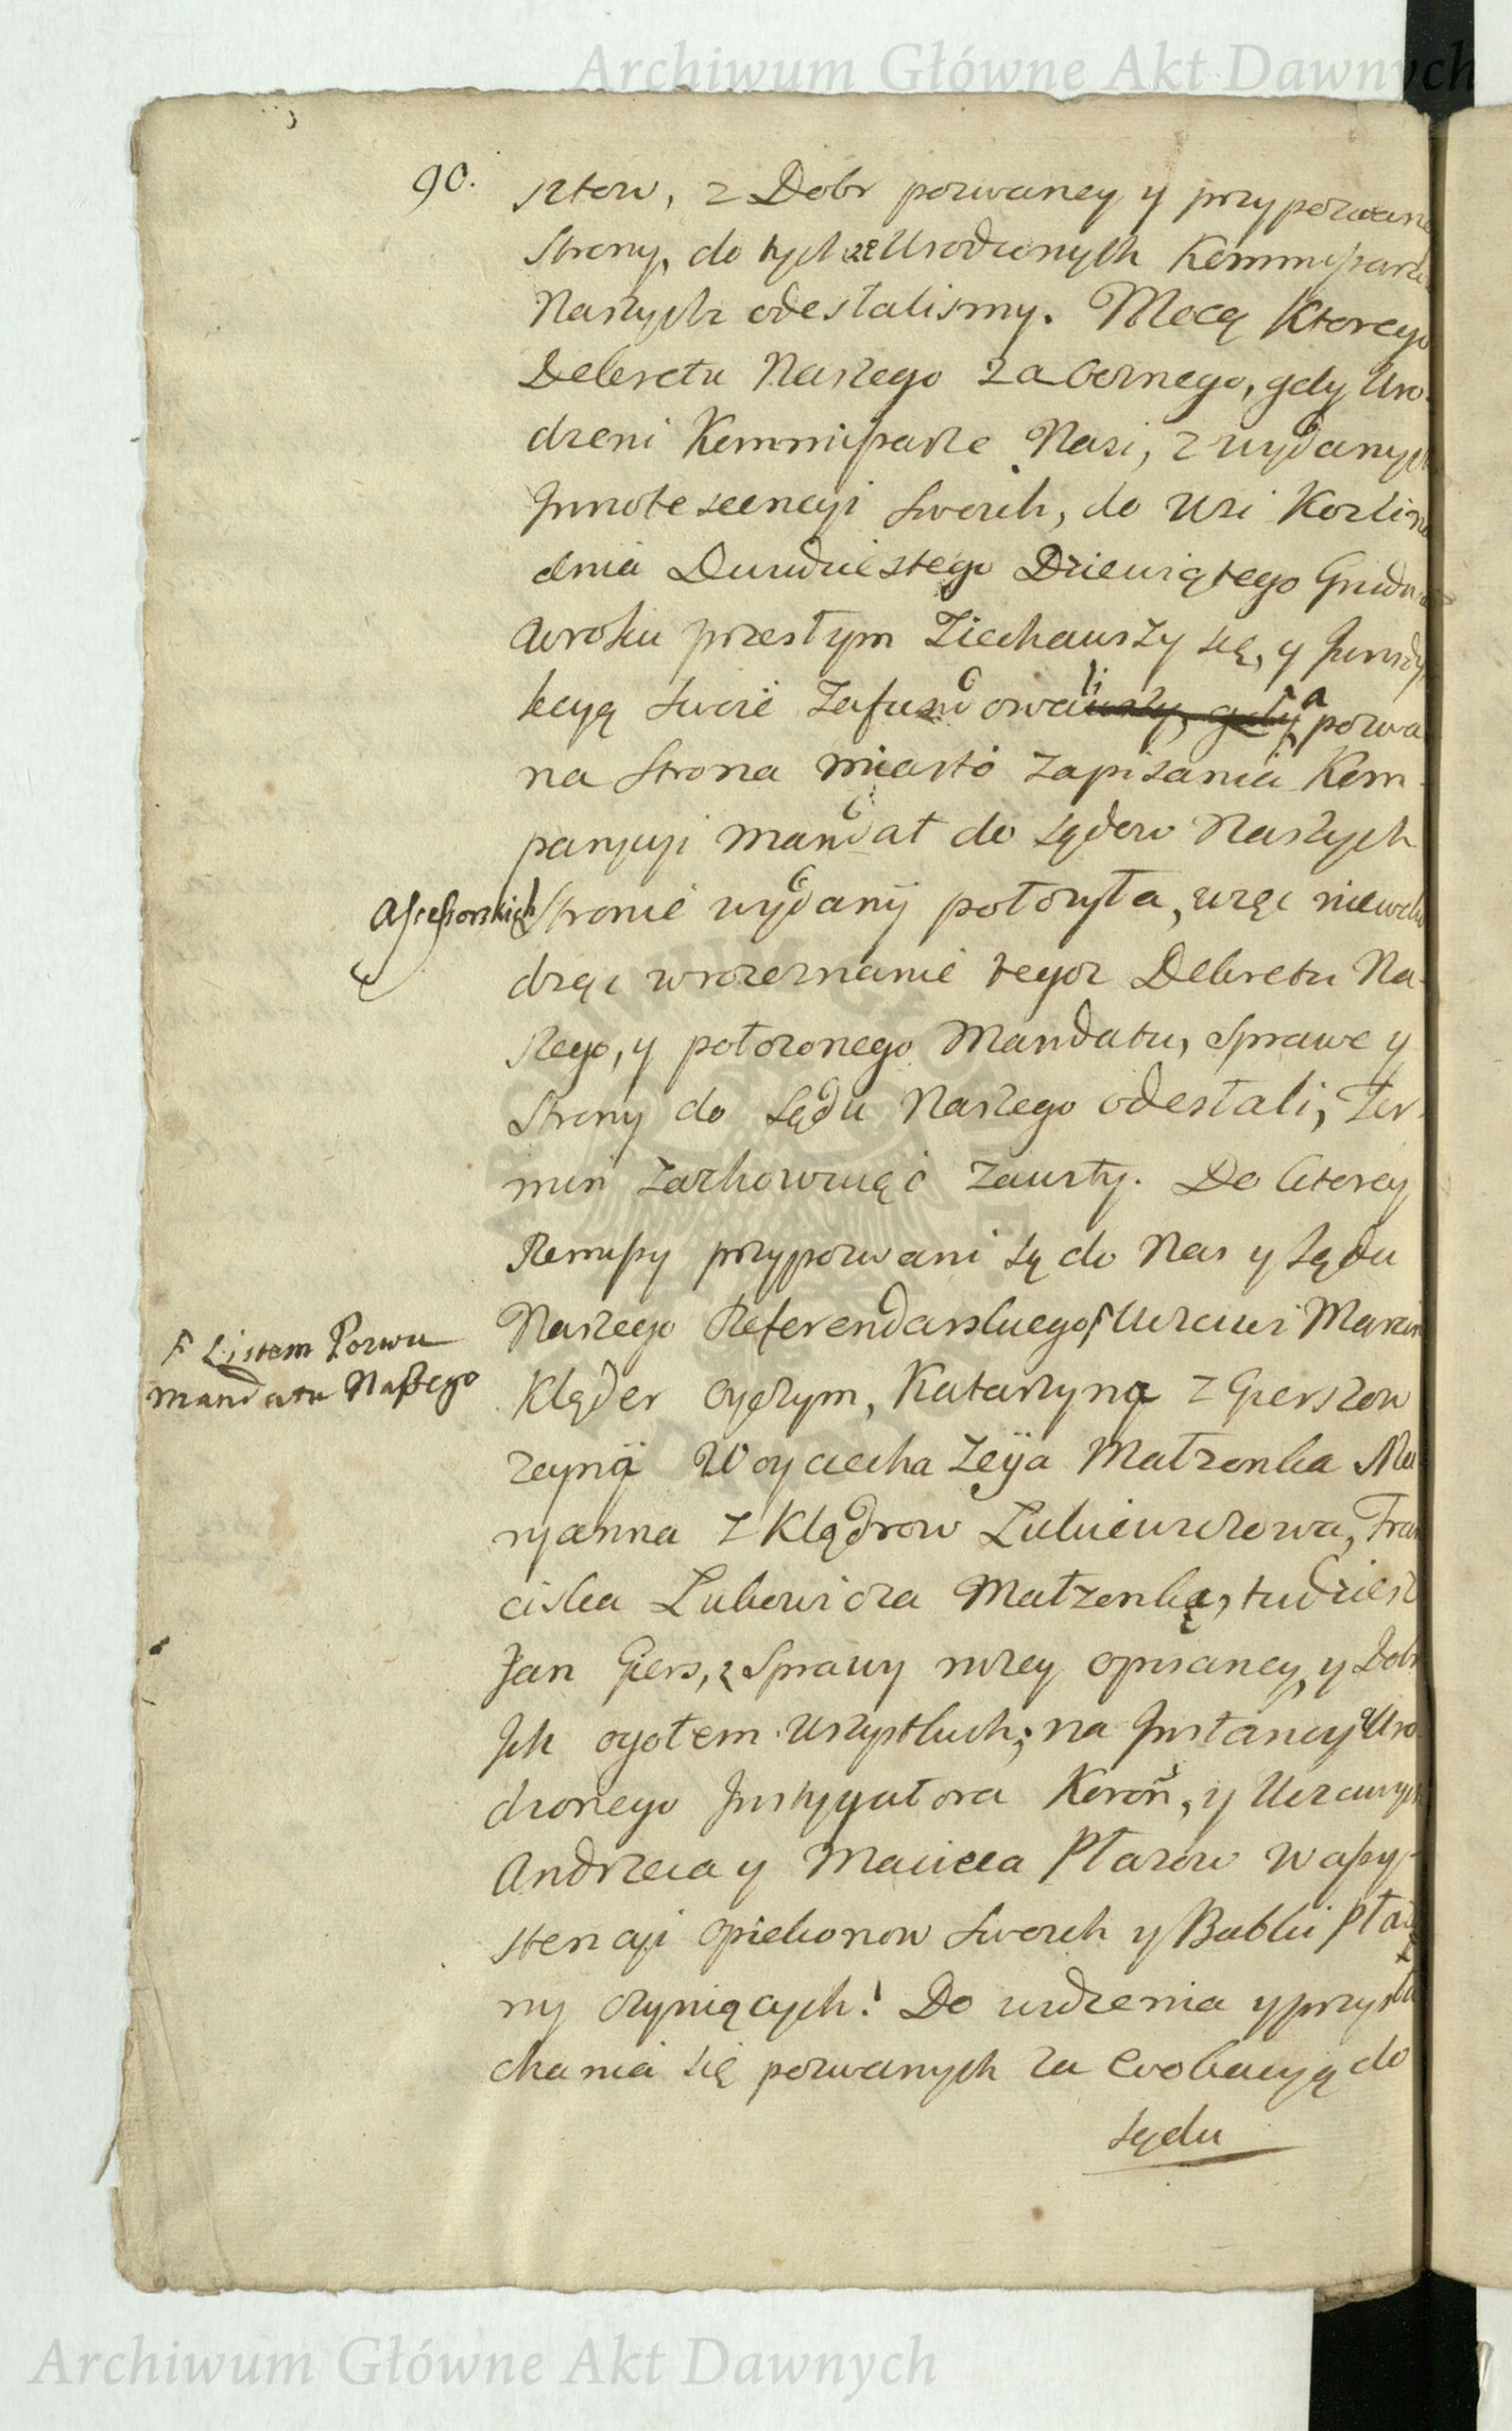 Archiwum Główne Akt Dawnych
90.
sztow, z Dobr pozwaney y przypozwane
Strony, do tychże Urodzonych Kommissarz
Naszych odesłalismy. Mocą Ktorego
Dekretu Naszego zaocznego, gdy Uro-
dzeni Kommissarze Nasi, z wydanych
Innotescencyi Swoich, do Wsi
dnia Dwudziestego Dziewiątego Grudn
wroku przeszłym Ziechawszy się, y Juryzdy
kcyą Swoię Zafundowali a pozwa
na Strona miasto zapisania Kom-
parycyi Mandat do Sądow Naszych
Assessorskich
Stronie wydany położyła, więc niewcho
dząc wrozeznanie tegoż Dekretu Na-
szego, y położonego Mandatu, Sprawę y
Strony do Sądu Naszego odesłali, Ter-
min Zachowując Zawsty. Do ktorey
Remissy przypozwani są do Nas y Sądu
Naszego Referendarskiego Uczciwi Marcin
Listem Pozwu
Mandatu Naszego
Kląder Oyczym, Katarzyna z Gierszow
Woyciecha Zeyia Małzonka Ma
ryanna z Klądrow Lukiewiczowa, Fran
ciszka Lukowicza Małzonka, tudziesz
Jan Giers, z Sprawy niżey opisaney, y Dobr
Ich ogołem wszystkich; na Instancyą Uro
dzonego Instygatora Koroń, y Uczciwych
Andrzeia y Macieia Płazow w assy-
stencyi Opiekonow Swoich y Babki Płazi
ny czyniących! Do widzenia y przysłu
chania się pozwanych za Ewokacyą do
Sądu
Archiwum Główne Akt Dawnych